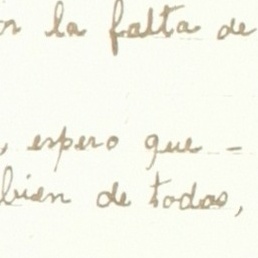 or la falta de
, espero que -
bien de todos,